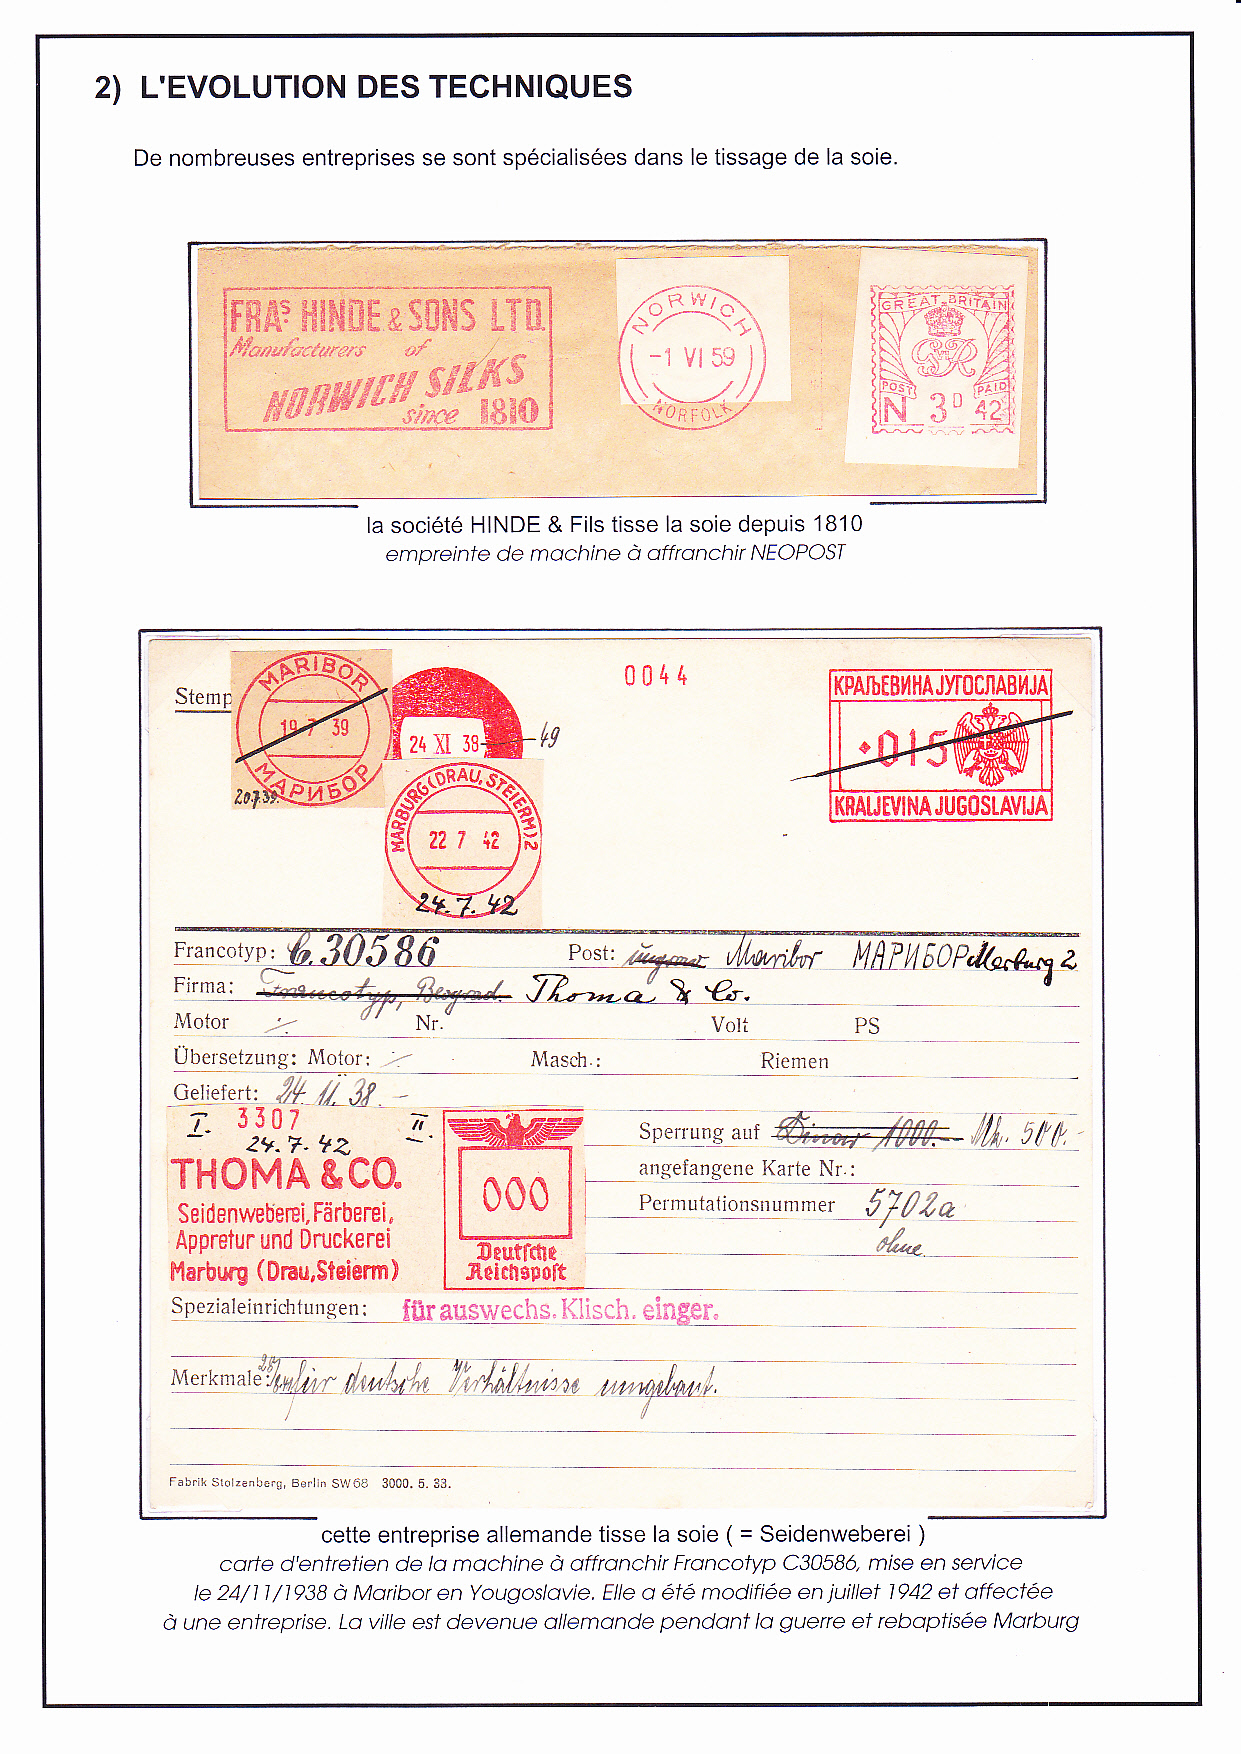 2) L'EVOLUTION DES TECHNIQUES
De nombreuses entreprises se sont spécialisées dans le tissage de la soie.
FRAS HINDE & SONS LTD.
Manufacturers of
NORWICH SILKS
since 1810
NORWICH
-1 VI 59
NORFOLK
GREAT BRITAIN
GR VI
POST PAID
N 3D 42
la société HINDE & Fils tisse la soie depuis 1810
empreinte de machine à affranchir NEOPOST
Stemp
MARIBOR
19 7 39
МАРИБОР
20.7.39.
24 XI 38
49
0044
КРАЉЕВИНА ЈУГОСЛАВИЈА
015
KRALJEVINA JUGOSLAVIJA
MARBURG (DRAU, STEIERM) 2
22 7 42
24. 7. 42
Francotyp: C. 30586 Post: Maribor МАРИБОР Marburg 2
Firma: Francotyp, Beograd. Thoma & Co.
Motor ·/. Nr. Volt PS
Übersetzung: Motor: ·/. Masch.: Riemen
Geliefert: 24. 11. 38. -
I. 3307 II.
24. 7. 42
THOMA & CO.
Seidenweberei, Färberei,
Appretur und Druckerei
Marburg (Drau, Steierm)
000
Deutsche
Reichspost
Sperrung auf Dinar 1000.- Mk. 500.-
angefangene Karte Nr.:
Permutationsnummer 5702a
ohne
Spezialeinrichtungen: für auswechs. Klisch. einger.
Merkmale: für deutsche Verhältnisse umgebaut.
Fabrik Stolzenberg, Berlin SW68 3000. 5. 33.
cette entreprise allemande tisse la soie ( = Seidenweberei )
carte d'entretien de la machine à affranchir Francotyp C30586, mise en service
le 24/11/1938 à Maribor en Yougoslavie. Elle a été modifiée en juillet 1942 et affectée
à une entreprise. La ville est devenue allemande pendant la guerre et rebaptisée Marburg